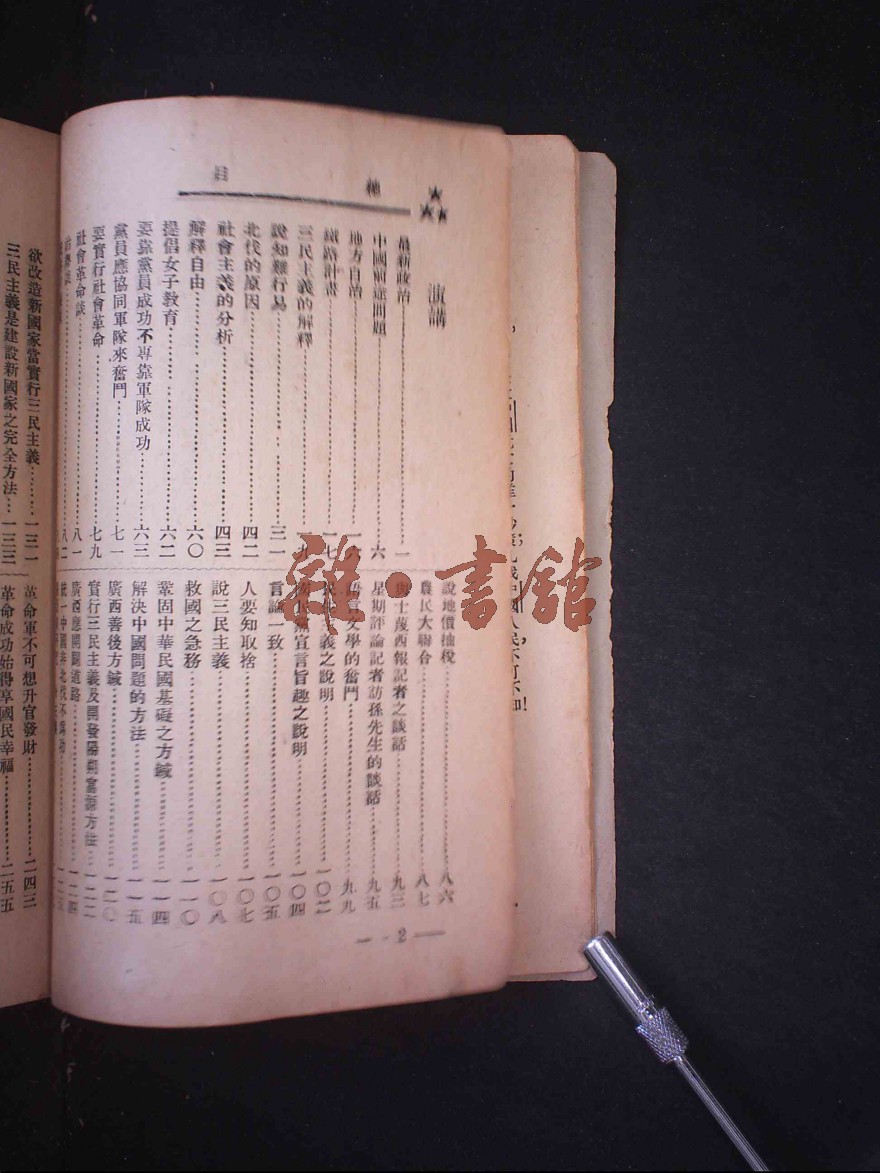 目
演講
最新政治……一
中國前途問題……六
地方自治……一六
鐵路計畫……一七
三民主義的解釋……一九
說知難行易……三一
北伐的原因……四二
社會主義的分析……四三
解釋自由……六〇
提倡女子教育……六二
要靠黨員成功不專靠軍隊成功……六三
黨員應協同軍隊來奮鬥……七一
要實行社會革命……七九
社會革命談……八一
說地價抽稅……八六
農民大聯合……八七
西報記者之談話……九三
星期評論記者訪孫先生的談話……九五
語言文學的奮鬥……九九
民生主義之說明……一〇二
黨宣言旨趣之說明……一〇四
言論一致……一〇五
人要知取捨……一〇七
說三民主義……一〇八
救國之急務……一一〇
鞏固中華民國基礎之方鍼……一一四
解決中國問題的方法……一一五
廣西善後方鍼……一二〇
實行三民主義及開發陽朔富源方法……一二二
廣西應開闢道路……一二四
統一中國非北伐不為功……一二五
— 2 —
欲改造新國家當實行三民主義……一三一
三民主義是建設新國家之完全方法……一三三
革命軍不可想升官發財……二四三
革命成功始得享國民幸福……二五五
雜·書館